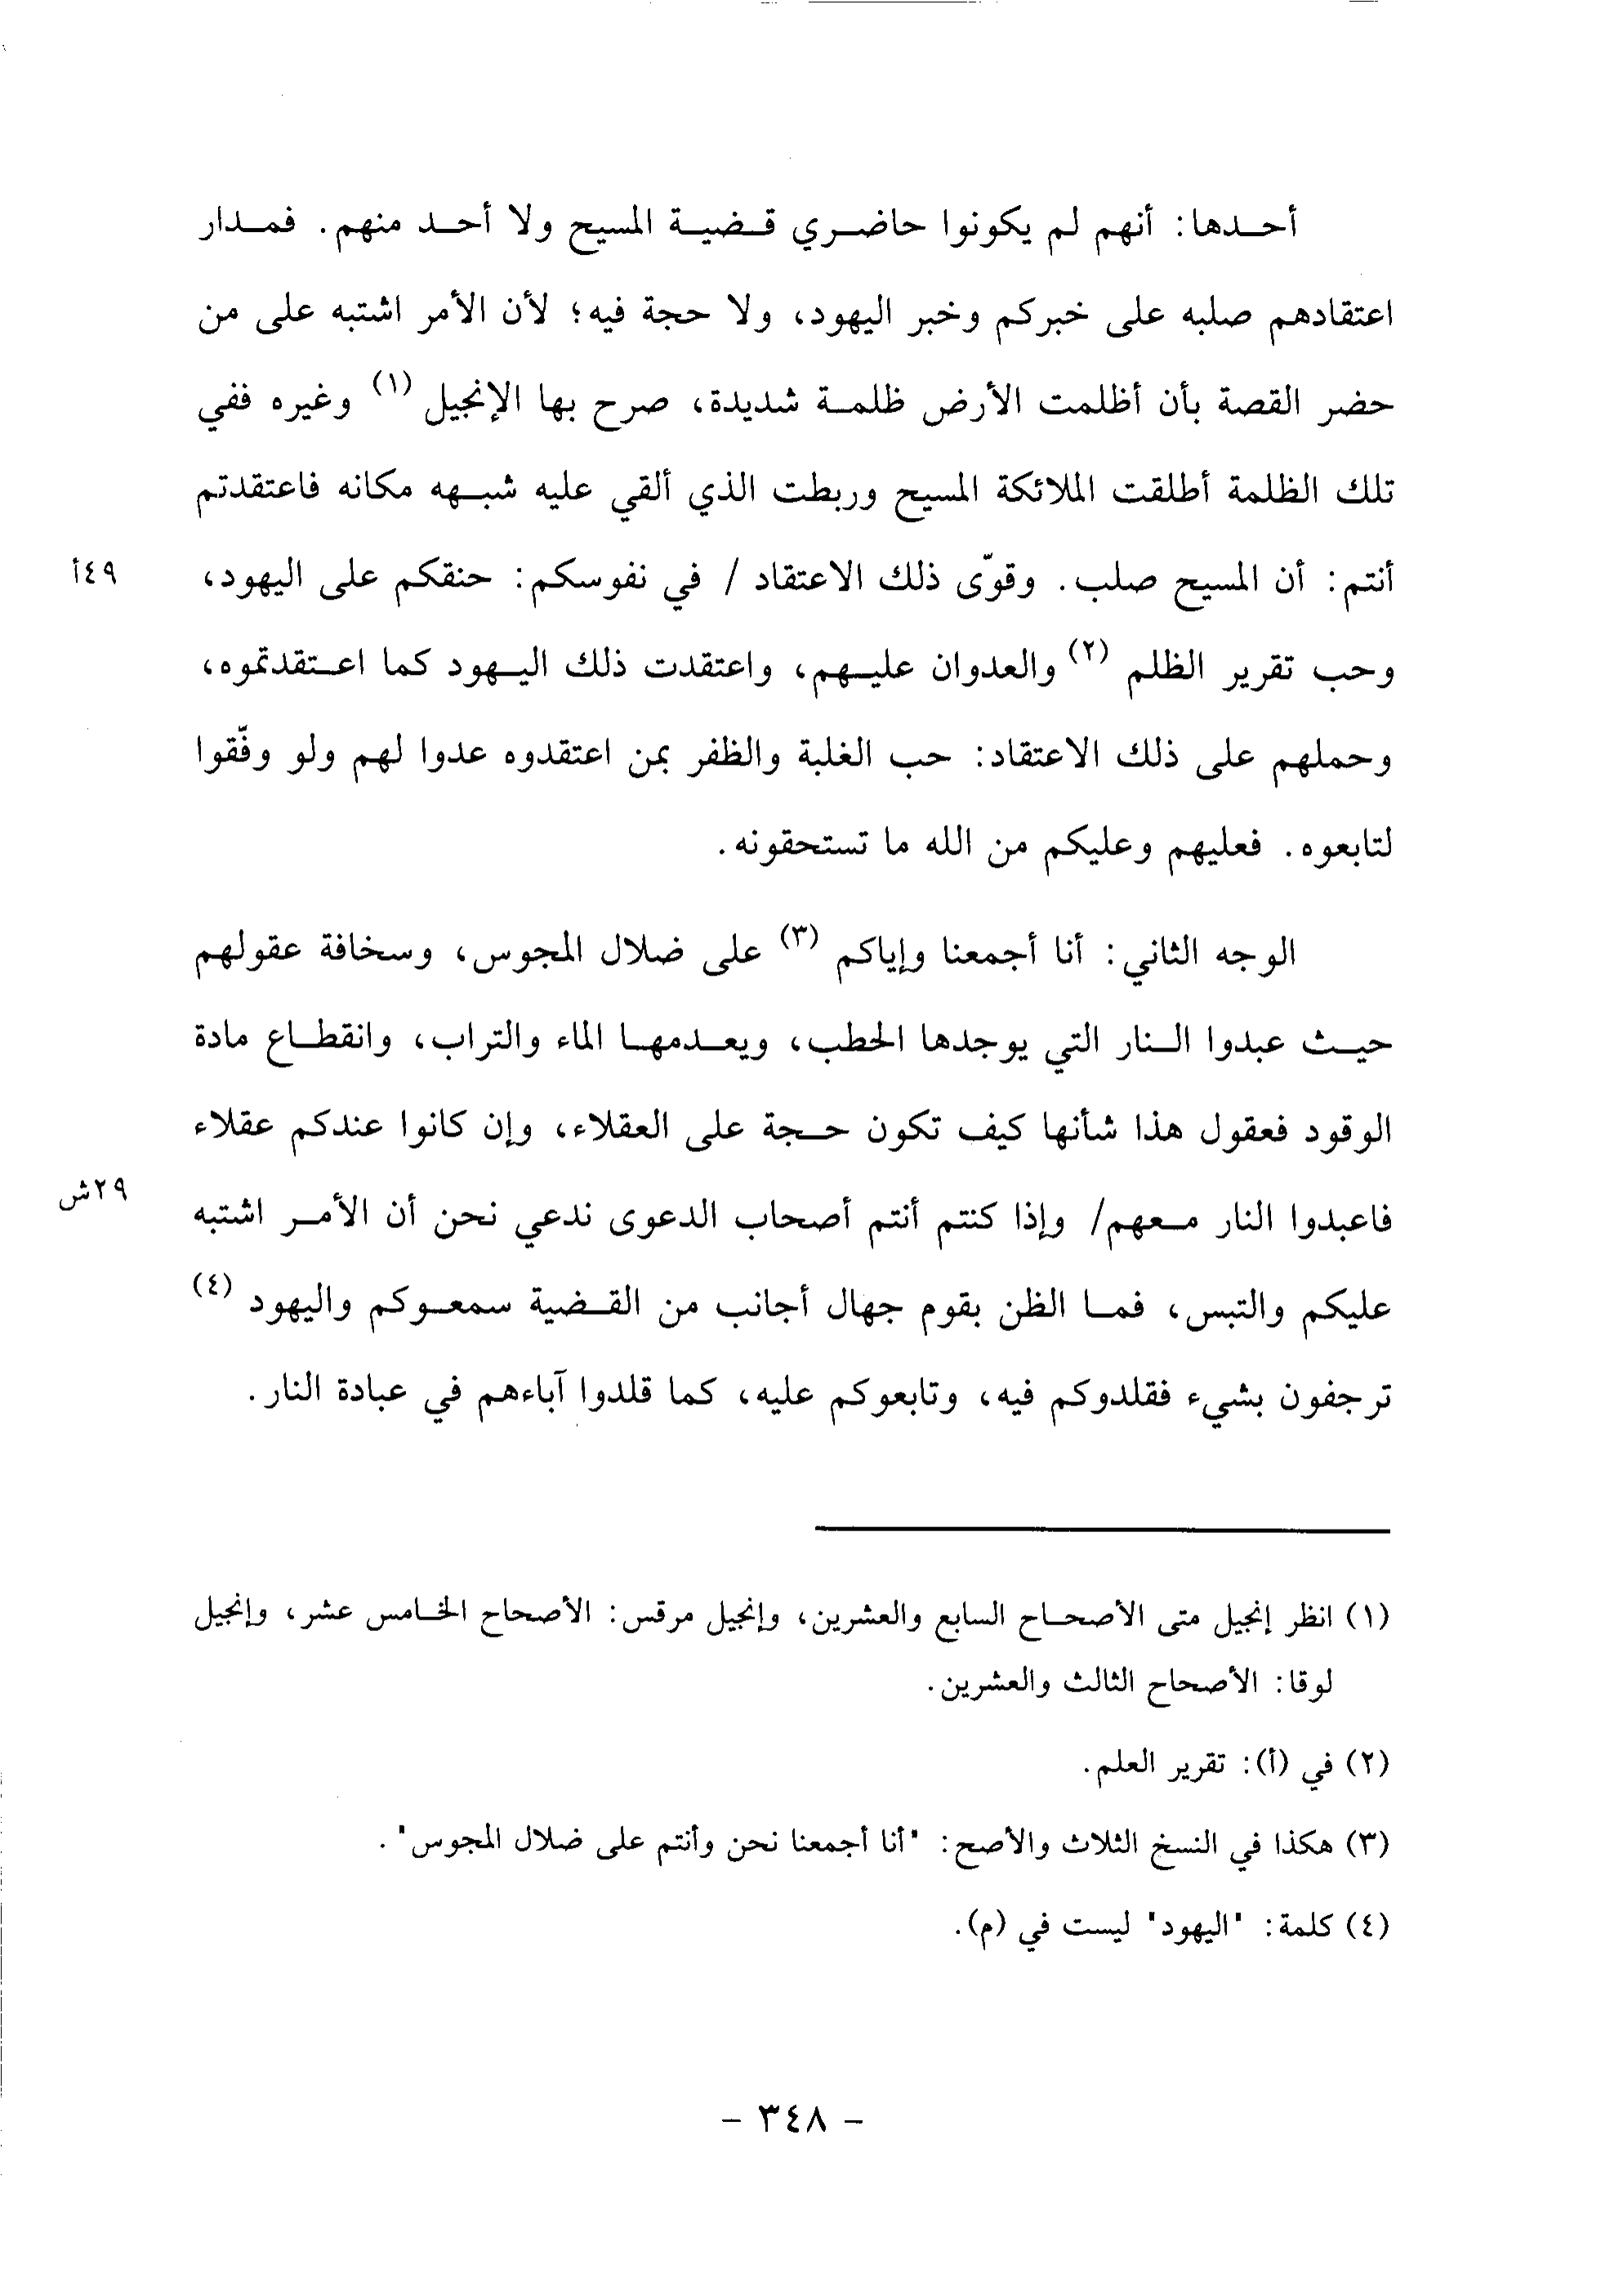 أحدها: أنهم لم يكونوا حاضري قضية المسيح ولا أحد منهم. فمدار
اعتقادهم صلبه على خبركم وخبر اليهود، ولا حجة فيه؛ لأن الأمر اشتبه على من
حضر القصة بأن أظلمت الأرض ظلمة شديدة، صرح بها الإنجيل (١) وغيره ففي
تلك الظلمة أطلقت الملائكة المسيح وربطت الذي ألقي عليه شبهه مكانه فاعتقدتم
أنتم: أن المسيح صلب. وقوّى ذلك الاعتقاد / في نفوسكم: حنقكم على اليهود،
٤٩أ
وحب تقرير الظلم (٢) والعدوان عليهم، واعتقدت ذلك اليهود كما اعتقدتموه،
وحملهم على ذلك الاعتقاد: حب الغلبة والظفر بمن اعتقدوه عدوا لهم ولو وفّقوا
لتابعوه. فعليهم وعليكم من الله ما تستحقونه.
الوجه الثاني: أنا أجمعنا وإياكم (٣) على ضلال المجوس، وسخافة عقولهم
حيث عبدوا النار التي يوجدها الحطب، ويعدمها الماء والتراب، وانقطاع مادة
الوقود فعقول هذا شأنها كيف تكون حجة على العقلاء، وإن كانوا عندكم عقلاء
فاعبدوا النار معهم/ وإذا كنتم أنتم أصحاب الدعوى ندعي نحن أن الأمر اشتبه
٢٩ش
عليكم والتبس، فما الظن بقوم جهال أجانب من القضية سمعوكم واليهود (٤)
ترجفون بشيء فقلدوكم فيه، وتابعوكم عليه، كما قلدوا آباءهم في عبادة النار.
(١) انظر إنجيل متى الأصحاح السابع والعشرين، وإنجيل مرقس: الأصحاح الخامس عشر، وإنجيل
لوقا: الأصحاح الثالث والعشرين.
(٢) في (أ): تقرير العلم.
(٣) هكذا في النسخ الثلاث والأصح: "أنا أجمعنا نحن وأنتم على ضلال المجوس".
(٤) كلمة: "اليهود" ليست في (م).
- ٣٤٨ -